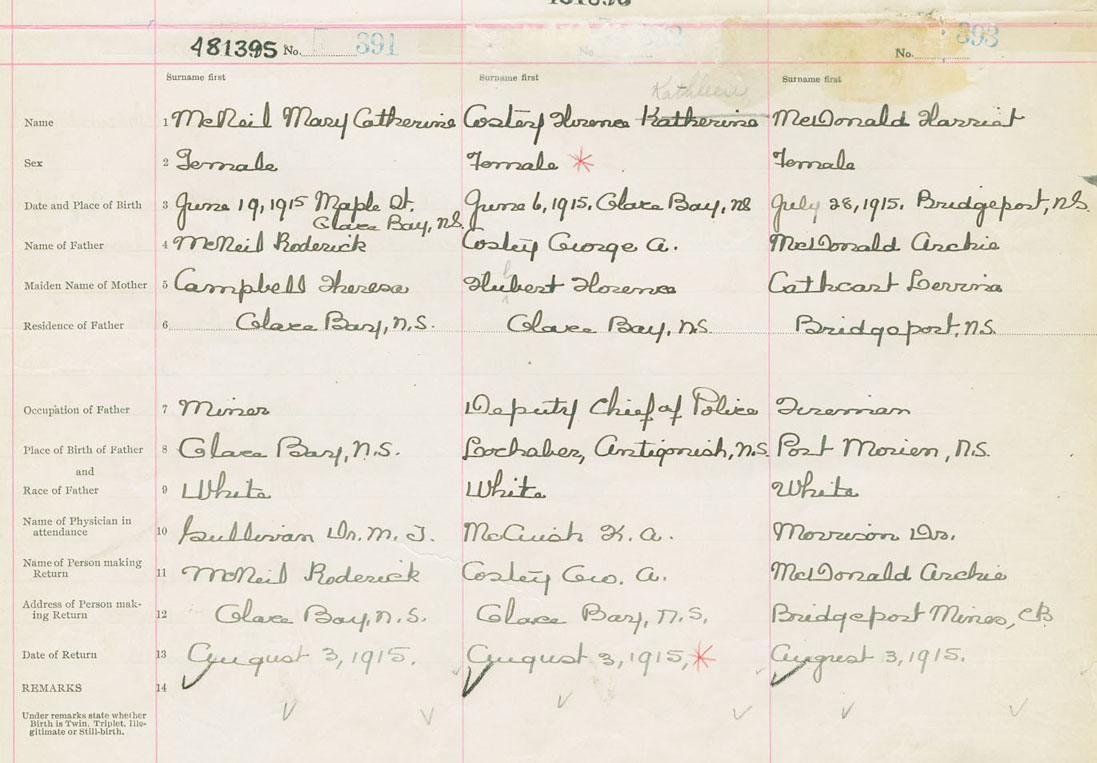 481395 No. 391 No. No. 393
Surname first Surname first Surname first
Kathleen
Name 1 McNeil Mary Catherine Costey Florence Katherine McDonald Harriet
Sex 2 Female Female * Female
Date and Place of Birth 3 June 19, 1915 Maple St. June 6, 1915. Glace Bay, NS July 28, 1915. Bridgeport, N.S.
Glace Bay, N.S.
Name of Father 4 McNeil Roderick Costey George A. McDonald Archie
Maiden Name of Mother 5 Campbell Theresa Hubert Florence Cathcart
Residence of Father 6 Glace Bay, N.S. Glace Bay, N.S. Bridgeport, N.S.
Occupation of Father 7 Miner Deputy Chief of Police Fireman
Place of Birth of Father 8 Glace Bay, N.S. Lochaber, Antigonish, N.S. Port Morien, N.S.
and
Race of Father 9 White White White
Name of Physician in
attendance 10 Sullivan Dr. M. T. McCuish K. A. Morrison Dr.
Name of Person making
Return 11 McNeil Roderick Costey Geo. A. McDonald Archie
Address of Person mak-
ing Return 12 Glace Bay, N.S. Glace Bay, N.S, Bridgeport Mines, CB
Date of Return 13 August 3, 1915. August 3, 1915, * August 3, 1915.
REMARKS 14
Under remarks state whether
Birth is Twin, Triplet, Ille-
gitimate or Still-birth.